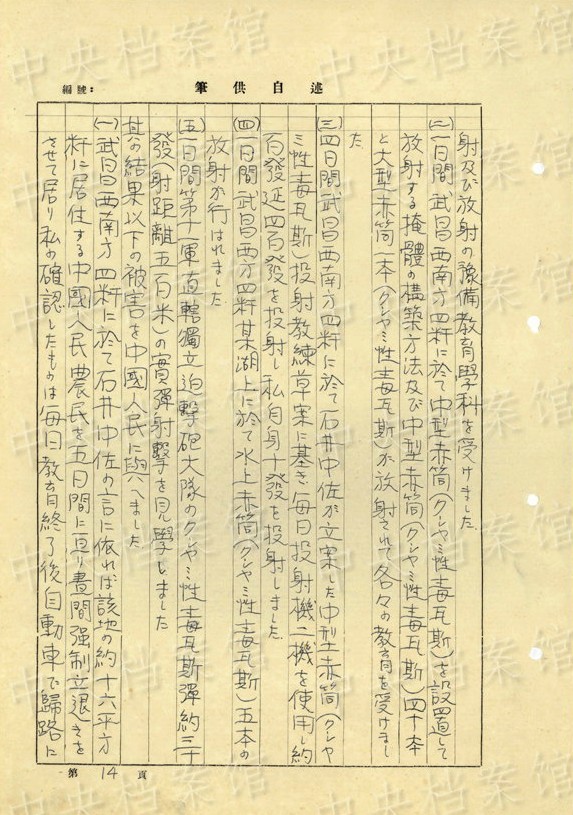 中央档案馆
編號:
筆供自述
射及び放射の豫備教育學科を受けました
(二)一日間武昌西南方四粁に於て中型赤筒(クシャミ性毒瓦斯)を設置して
放射する掩體の構築方法及び中型赤筒(クシャミ性毒瓦斯)四十本
と大型赤筒一本(クシャミ性毒瓦斯)が放射されて各々の教育を受けまし
た
(三)四日間武昌西南方四粁に於て石井中佐が立案した中型赤筒(クシャ
ミ性毒瓦斯)投射教練草案に基き毎日投射機二機を使用し約
百發延四百發を投射し私自身十發を投射しました
(四)一日間武昌西方四粁某湖上に於て水上赤筒(クシャミ性毒瓦斯)五本の
放射が行はれました
(五)一日間第十一軍直轄獨立迫擊砲大隊のクシャミ性毒瓦斯彈約三十
發射距離五百米の實彈射擊を見學しました
其の結果以下の被害を中國人民に與へました
(一)武昌西南方四粁に於て石井中佐の言に依れば該地の約十六平方
粁に居住する中國人民農民を五日間に亘り晝間強制立退きを
させて居り私の確認したものは毎日教育終了後自動車で歸路に
第14頁